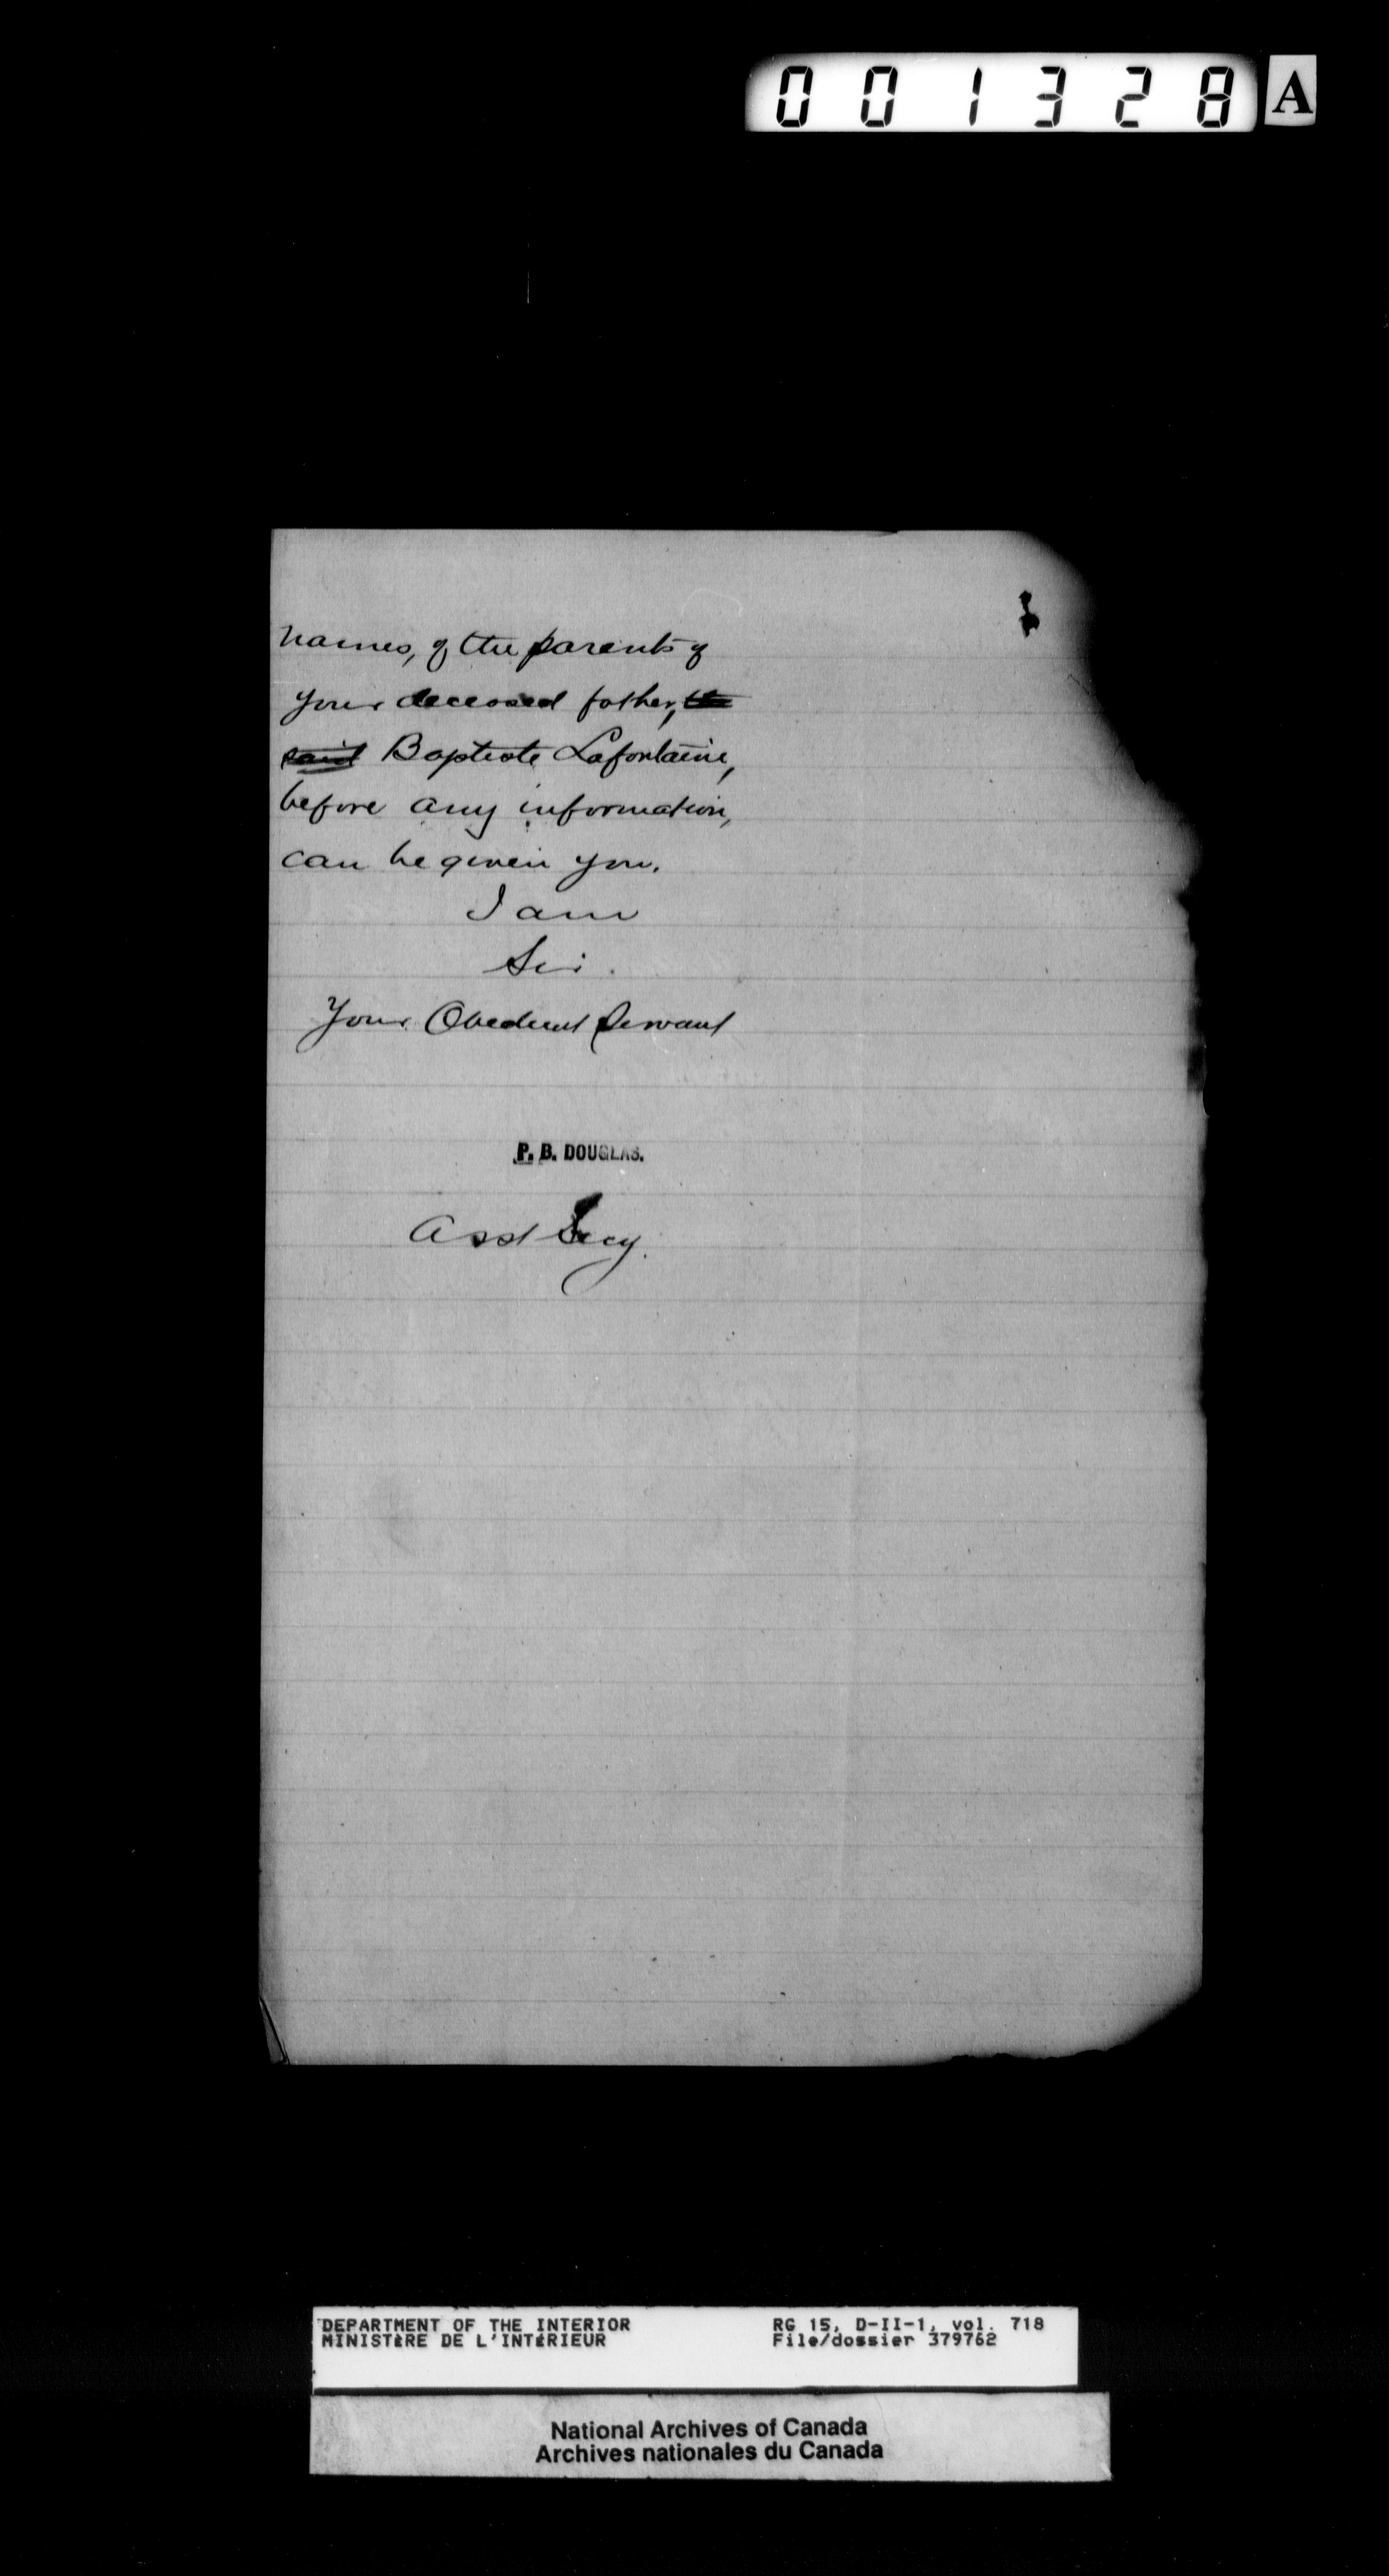 001328 A
names, of the parents of
your deceased father, the
said Baptiste Lafontaine,
before any information,
can be given you.
I am
Sir.
Your Obedient Servant
P. B. DOUGLAS.
Asst Secy.
DEPARTMENT OF THE INTERIOR RG 15, D-II-1, vol. 718
MINISTÈRE DE L'INTÉRIEUR File/dossier 379762
National Archives of Canada
Archives nationales du Canada